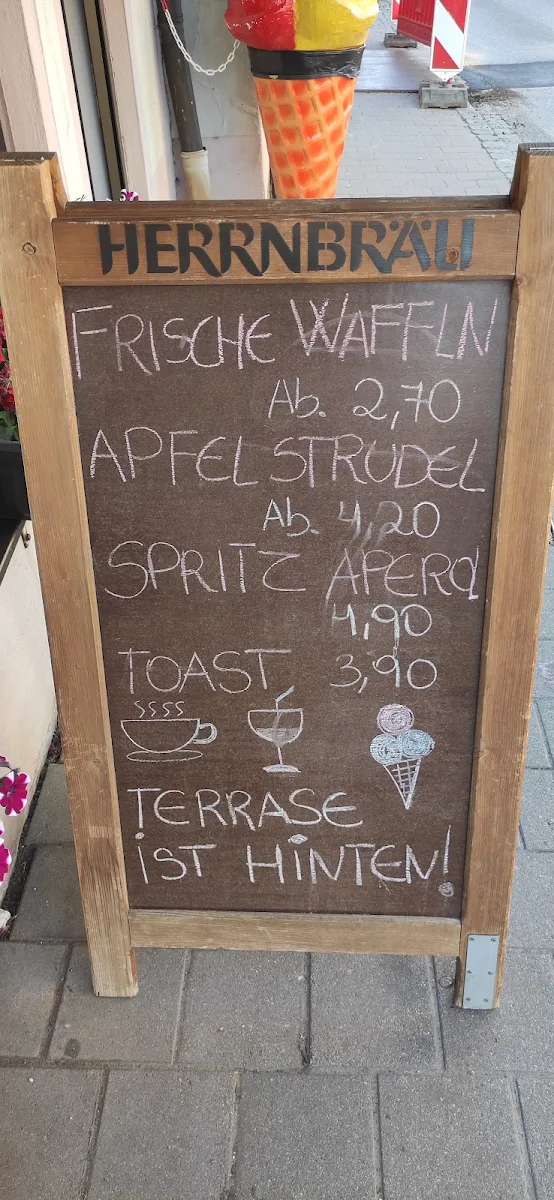 HERRNBRÄU
FRISCHE WAFFLN
Ab. 2,70
APFELSTRUDEL
Ab. 4,20
SPRITZ APEROL
4,90
TOAST 3,90
TERRASE
iST HiNTEN!